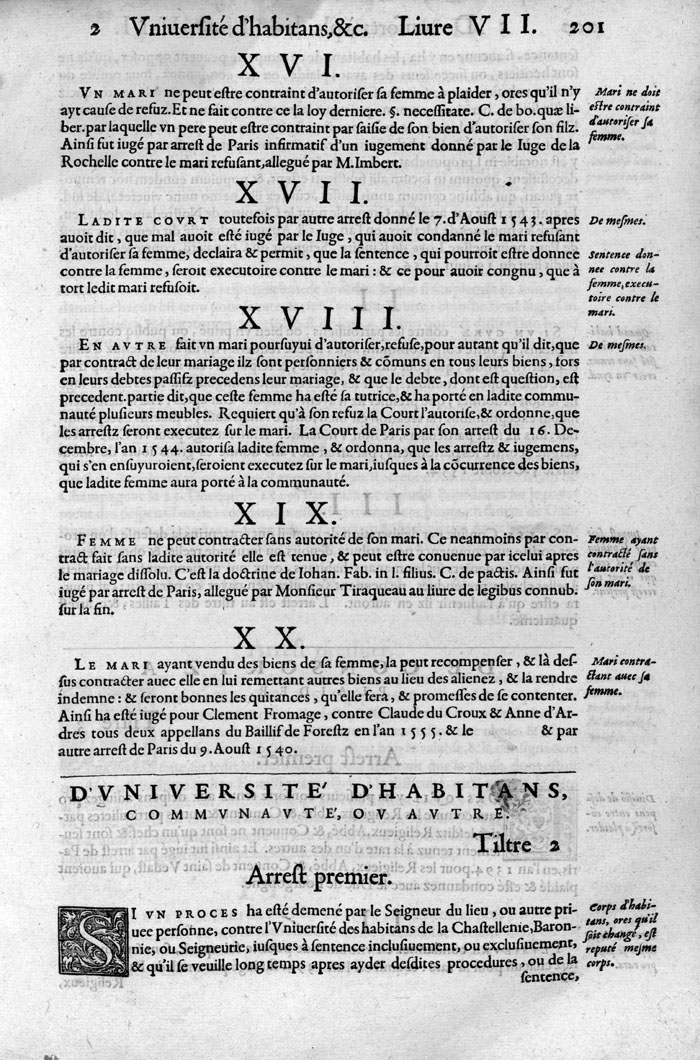 2 Vniuersité d'habitans, &c. Liure VII. 201
XVI.
VN MARI ne peut estre contraint d'autoriser sa femme à plaider, ores qu'il n'y
ayt cause de refuz. Et ne fait contre ce la loy derniere. §. necessitate. C. de bo. quæ li-
ber. par laquelle vn pere peut estre contraint par saisie de son bien d'autoriser son filz.
Ainsi fut iugé par arrest de Paris infirmatif d'un iugement donné par le Iuge de la
Rochelle contre le mari refusant, allegué par M. Imbert.
Mari ne doit
estre contraint
d'autoriser sa
femme.
XVII.
LADITE COVRT toutefois par autre arrest donné le 7. d'Aoust 1543. apres
auoit dit, que mal auoit esté iugé par le Iuge, qui auoit condanné le mari refusant
d'autoriser sa femme, declaira & permit, que la sentence, qui pourroit estre donnee
contre la femme, seroit executoire contre le mari : & ce pour auoir congnu, que à
tort ledit mari refusoit.
De mesmes.
Sentence don-
nee contre la
femme, execu-
toire contre le
mari.
XVIII.
EN AVTRE fait vn mari poursuyui d'autoriser, refuse, pour autant qu'il dit, que
par contract de leur mariage ilz sont personniers & cõmuns en tous leurs biens, fors
en leurs debtes passifz precedens leur mariage, & que le debte, dont est question, est
precedent. partie dit, que ceste femme ha esté sa tutrice, & ha porté en ladite commu-
nauté plusieurs meubles. Requiert qu'à son refuz la Court l'autorise, & ordonne, que
les arrestz seront executez sur le mari. La Court de Paris par son arrest du 16. De-
cembre, l'an 1544. autorisa ladite femme, & ordonna, que les arrestz & iugemens,
qui s'en ensuyuroient, seroient executez sur le mari, iusques à la cõcurrence des biens,
que ladite femme aura porté à la communauté.
De mesmes.
XIX.
FEMME ne peut contracter sans autorité de son mari. Ce neanmoins par con-
tract fait sans ladite autorité elle est tenue, & peut estre conuenue par icelui apres
le mariage dissolu. C'est la doctrine de Iohan. Fab. in l. filius. C. de pactis. Ainsi fut
iugé par arrest de Paris, allegué par Monsieur Tiraqueau au liure de legibus connub.
sur la fin.
Femme ayant
contracté sans
l'autorité de
son mari.
XX.
LE MARI ayant vendu des biens de sa femme, la peut recompenser, & là des-
sus contracter auec elle en lui remettant autres biens au lieu des alienez, & la rendre
indemne : & seront bonnes les quitances, qu'elle fera, & promesses de se contenter.
Ainsi ha esté iugé pour Clement Fromage, contre Claude du Croux & Anne d'Ar-
dres tous deux appellans du Baillif de Forestz en l'an 1555. & le & par
autre arrest de Paris du 9. Aoust 1540.
Mari contra-
ctant auec sa
femme.
D'VNIVERSITE' D'HABITANS,
COMMVNAVTE', OV AVTRE.
Tiltre 2
Arrest premier.
SI VN PROCES ha esté demené par le Seigneur du lieu, ou autre pri-
uee personne, contre l'Vniuersité des habitans de la Chastellenie, Baron-
nie, ou Seigneurie, iusques à sentence inclusiuement, ou exclusiuement,
& qu'il se veuille long temps apres ayder desdites procedures, ou de la
sentence,
Corps d'habi-
tans, ores qu'il
soit changé, est
reputé mesme
corps.